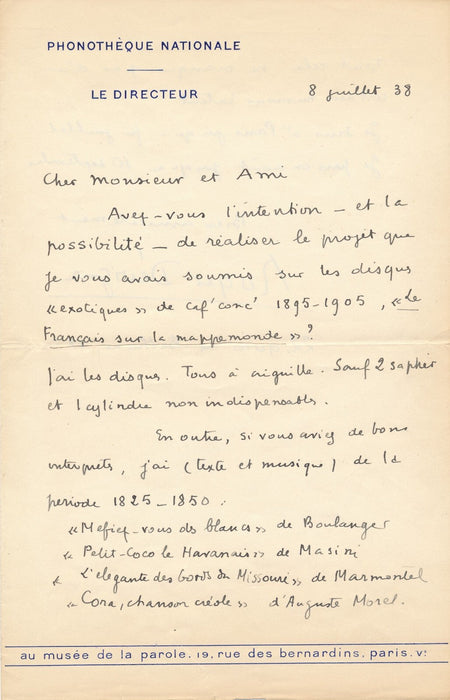 PHONOTHÈQUE NATIONALE
LE DIRECTEUR
8 juillet 38
Cher Monsieur et Ami
Avez-vous l'intention – et la
possibilité – de réaliser le projet que
je vous avais soumis sur les disques
« exotiques » de caf' conc' 1895-1905, « Le
Français sur la mappemonde » ?
J'ai les disques. Tous à aiguille. Sauf 2 saphir
et 1 cylindre non indispensables.
En outre, si vous aviez de bons
interprets, j'ai (texte et musique) de la
periode 1825-1850 :
« Mefiez-vous des blancs » de Boulanger
« Petit-Coco le Havanais » de Masini
« L'elegante des bords du Missouri » de Marmontel
« Cora, chanson créole » d'Auguste Morel.
au musée de la parole. 19, rue des bernardins. paris. vᵉ